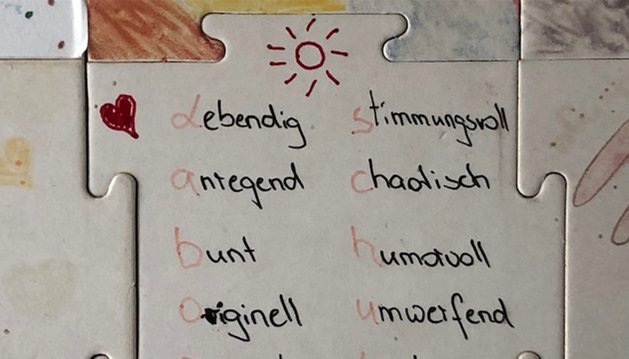 Lebendig stimmungsvoll
anregend chaotisch
bunt humorvoll
originell umwerfend